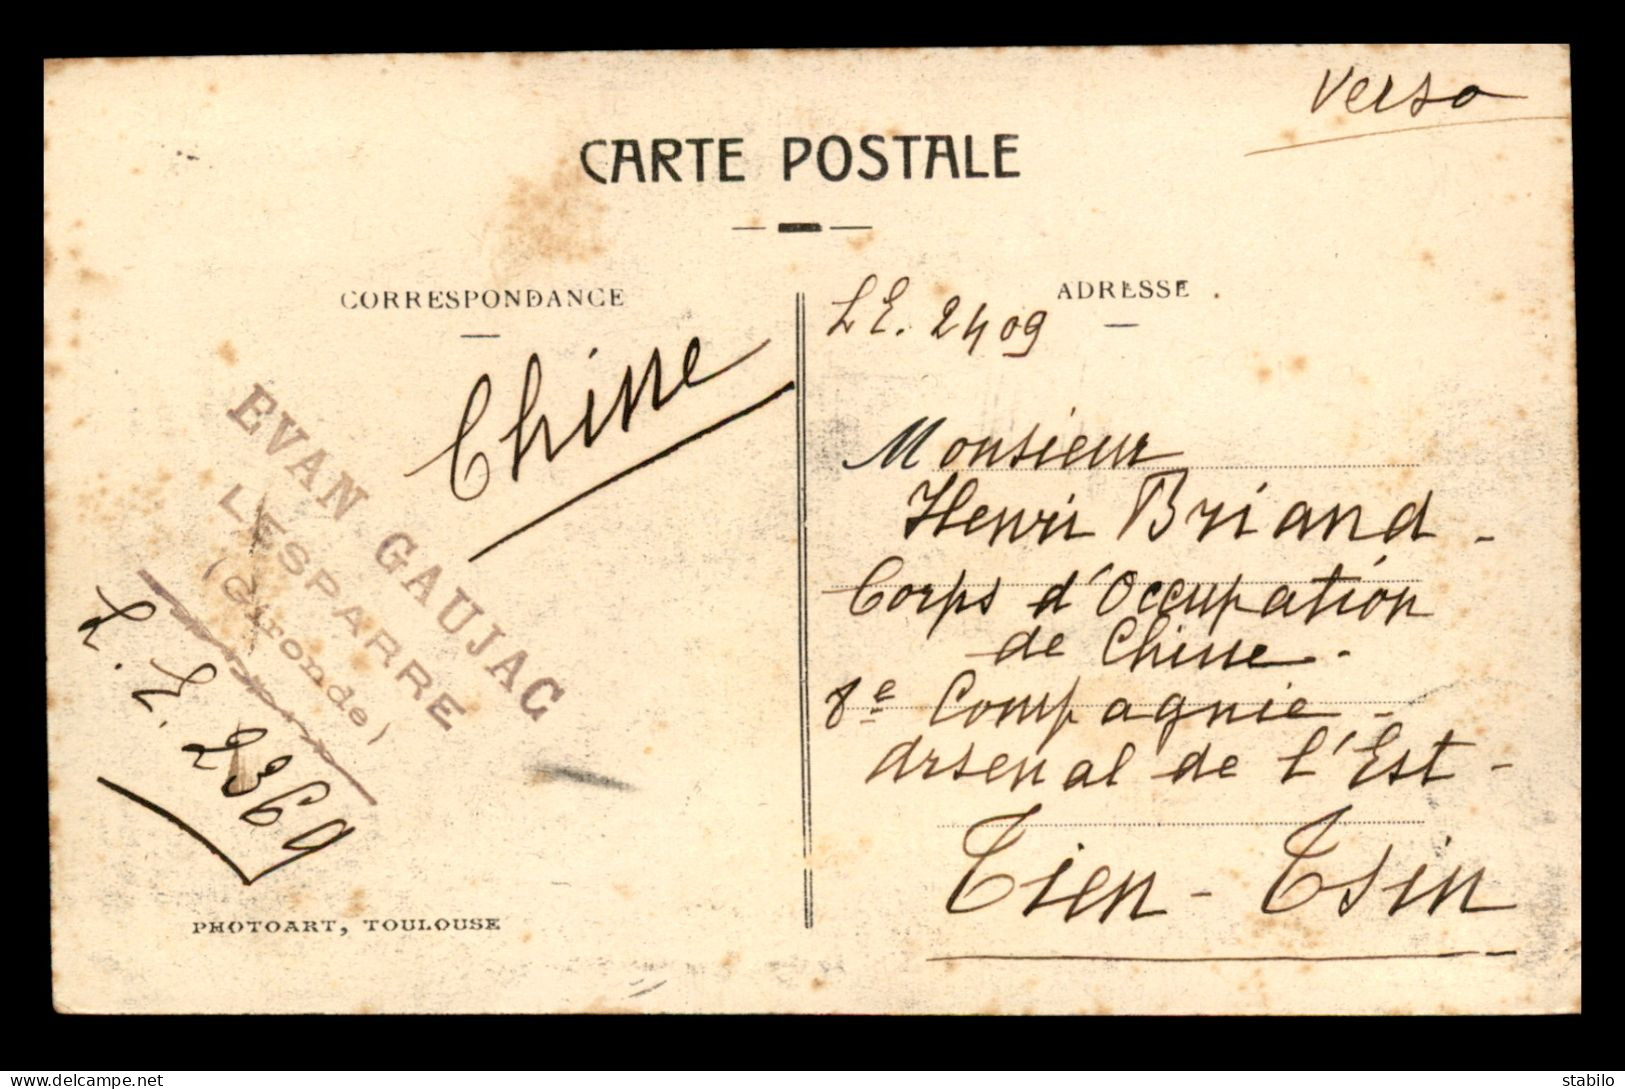 Verso
CARTE POSTALE
CORRESPONDANCE
ADRESSE
L E. 2409
Chine
EVAN GAUJAC
LESPARRE
(Gironde)
L. E. 2369
Monsieur
Henri Briand -
Corps d'Occupation
de Chine -
8e Compagnie -
Arsenal de l'Est -
Tien - Tsin
PHOTOART, TOULOUSE
stabilo